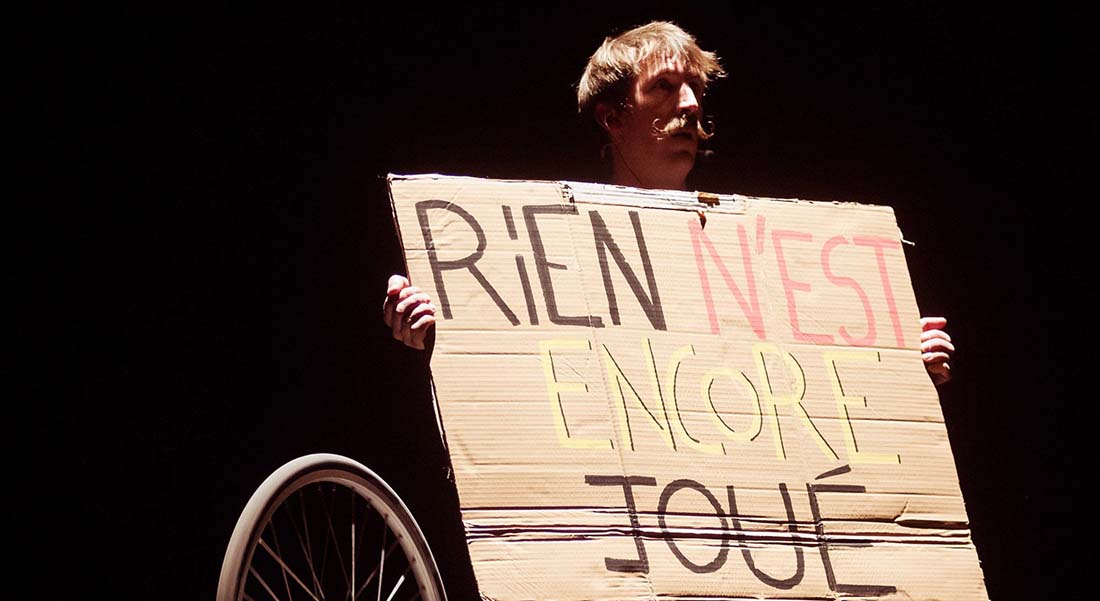 RiEN N'EST
ENCORE
JOUÉ